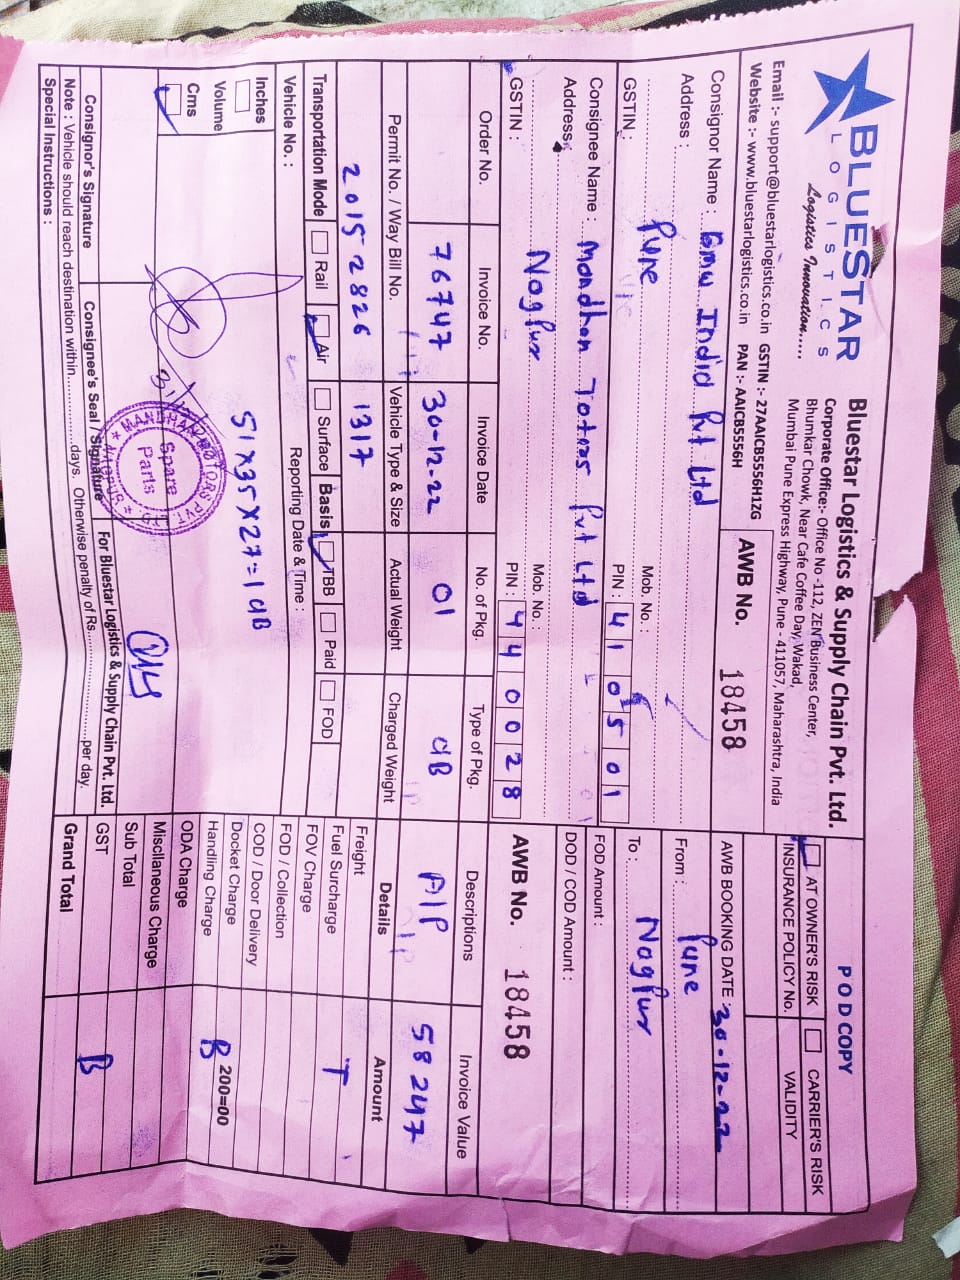 BLUESTAR
LOGISTICS
Logistics Innovation.....
Bluestar Logistics & Supply Chain Pvt. Ltd.
Corporate Office:- Office No -112, ZEN Business Center,
Bhumkar Chowk, Near Cafe Coffee Day, Wakad,
Mumbai Pune Express Highway, Pune - 411057, Maharashtra, India
Email :- support@bluestarlogistics.co.in GSTIN :- 27AAICB5556H1ZG
Website :- www.bluestarlogistics.co.in PAN :- AAICB5556H
AWB No. 18458
POD COPY
AT OWNER'S RISK CARRIER'S RISK
INSURANCE POLICY No. VALIDITY
AWB BOOKING DATE : 30-12-22
From : Pune
To : Nagpur
FOD Amount :
DOD / COD Amount :
AWB No. 18458
Consignor Name : Bmw India Pvt Ltd
Address :
Pune
Mob. No. :
GSTIN : PIN : 410501
Consignee Name : Mondhan Toters Pvt Ltd
Address
Nagpur
Mob. No. :
GSTIN : PIN : 440028
Order No. Invoice No. Invoice Date No. of Pkg. Type of Pkg. Descriptions Invoice Value
76747 30-12-22 01 CIB AIP 58247
Permit No. / Way Bill No. Vehicle Type & Size Actual Weight Charged Weight
20152826 1317
Transportation Mode Rail Air Surface Basis TBB Paid FOD
Vehicle No. : Reporting Date & Time :
Inches
Volume
Cms
51X35X27=1 CIB
MANDHAN MOTORS PVT. LTD.
Spare
Parts
* NAGPUR *
Consignor's Signature
Consignee's Seal / Signature
For Bluestar Logistics & Supply Chain Pvt. Ltd.
Note : Vehicle should reach destination within................days. Otherwise penalty of Rs.........................per day.
Special Instructions :
Details Amount
Freight
Fuel Surcharge T
FOV Charge
FOD / Collection
COD / Door Delivery
Docket Charge 200=00
Handling Charge B
ODA Charge
Miscllaneous Charge
Sub Total
GST B
Grand Total